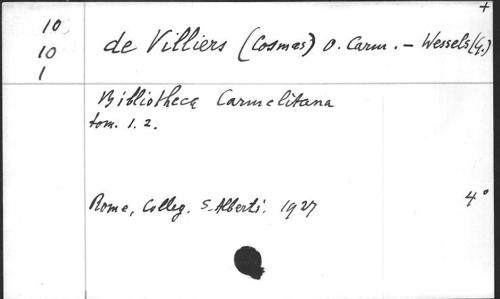 +
10
10
1
de Villiers (Cosmas) O. Carm. – Wessels (G.)
Bibliotheca Carmelitana
tom. 1. 2.
Rome, Colleg. S. Alberti. 1927
4°